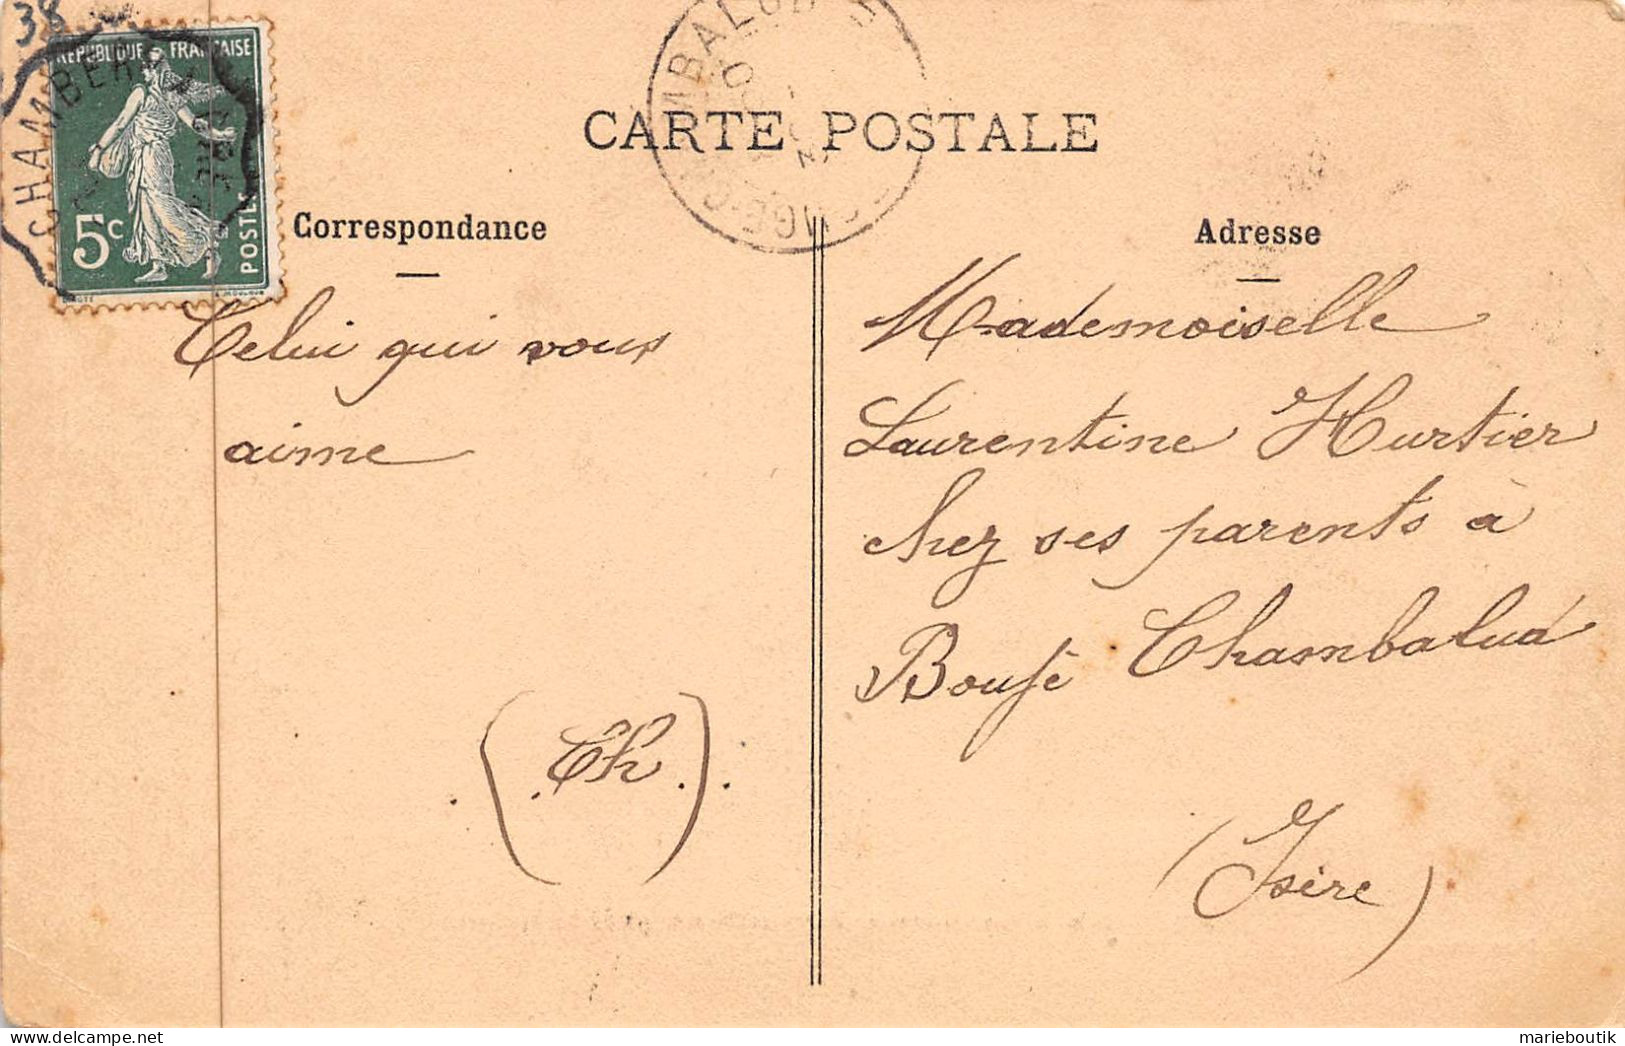 38
REPUBLIQUE FRANÇAISE
5c
POSTES
CHAMBERY
CARTE POSTALE
Correspondance
Adresse
Celui qui vous
aime
(. Ch .)
Mademoiselle
Laurentine Hurtier
chez ses parents à
Boufé Chambalud
(Isère)
marieboutik